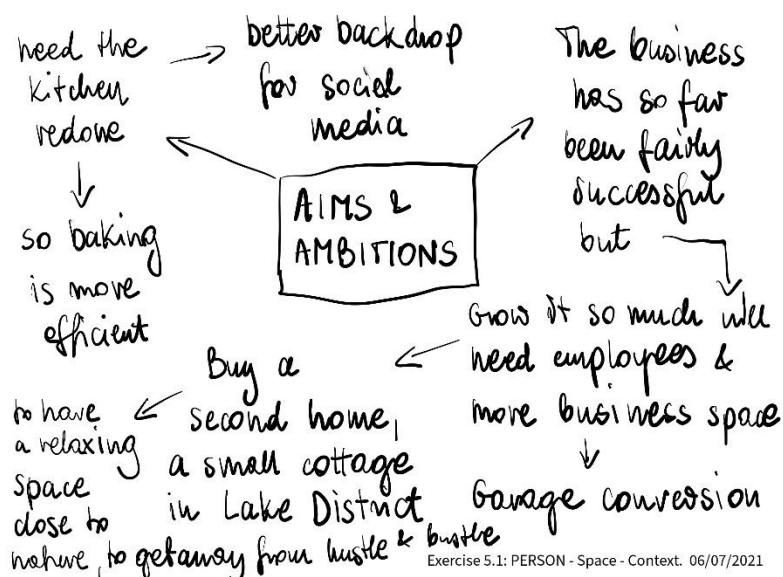 AIMS &
AMBITIONS
need the
kitchen
redone
better backdrop
for social
media
so baking
is more
efficient
The business
has so far
been fairly
successful
but
Grow it so much will
need employees &
more business space
Garage conversion
Buy a
second home,
a small cottage
in Lake District
to have
a relaxing
space
close to
nature, to getaway from hustle & bustle
Exercise 5.1: PERSON - Space - Context. 06/07/2021